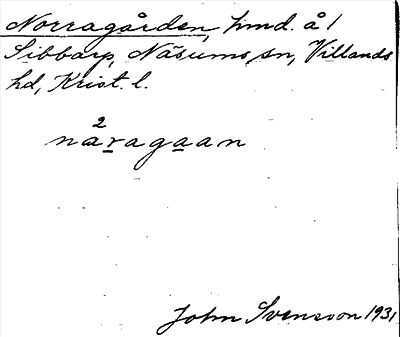 Norragården, hmd. å 1
Sibbarp, Näsums sn, Villands
hd, Krist. l.
2
nåragaan
John Svensson 1931